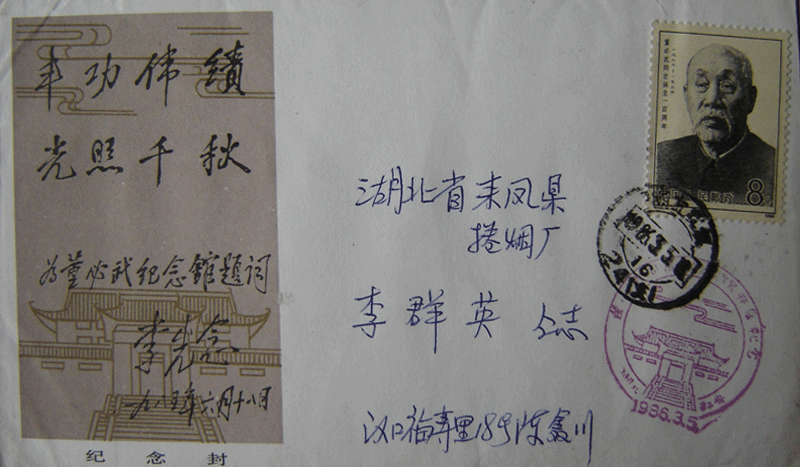 丰功伟绩
光照千秋
为董必武纪念館题词
李先念
一九八五年六月十八日
纪念封
董必武同志诞生一百周年
8
湖北省来凤県
捲烟厂
李群英 仝志
汉口福寿里18号陈鑫川
1986.3.5
16
1986.3.5